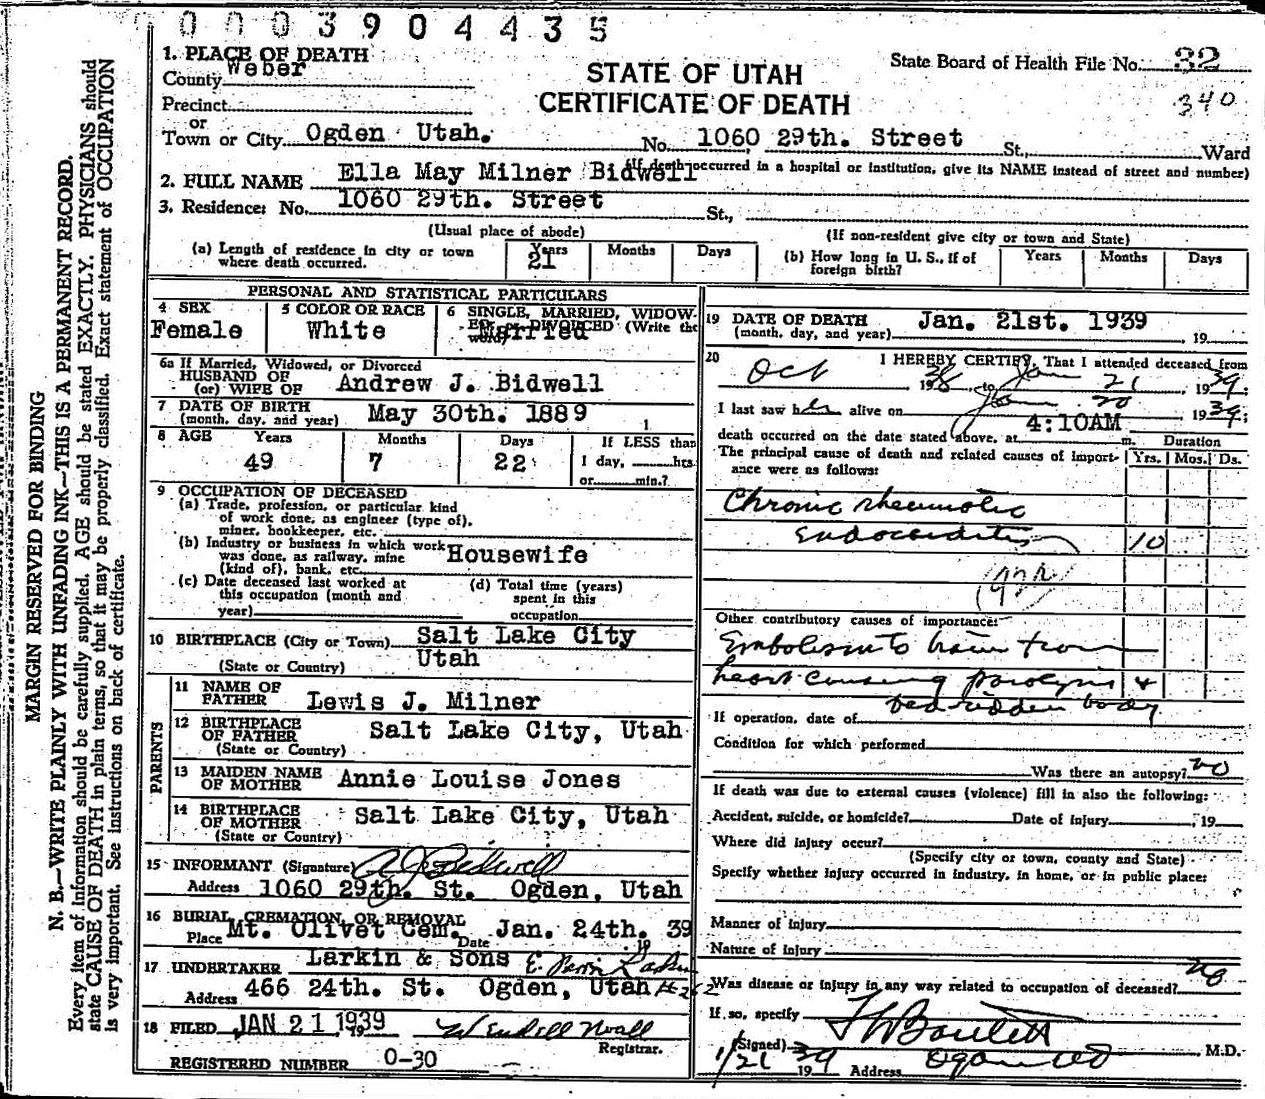 0003904435
1. PLACE OF DEATH
County Weber
State Board of Health File No. 32
STATE OF UTAH
340
Precinct
CERTIFICATE OF DEATH
or
Town or City Ogden Utah. No. 1060 29th. Street St., Ward
(If death occurred in a hospital or institution, give its NAME instead of street and number)
2. FULL NAME Ella May Milner Bidwell
3. Residence: No. 1060 29th. Street St.,
(Usual place of abode) (If non-resident give city or town and State)
(a) Length of residence in city or town where death occurred. Years 21 Months Days
(b) How long in U. S., if of foreign birth? Years Months Days
PERSONAL AND STATISTICAL PARTICULARS
4 SEX Female
5 COLOR OR RACE White
6 SINGLE, MARRIED, WIDOWED or DIVORCED (Write the word) Married
6a If Married, Widowed, or Divorced
HUSBAND OF
(or) WIFE OF Andrew J. Bidwell
7 DATE OF BIRTH
(month, day, and year) May 30th. 1889
8 AGE Years Months Days If LESS than
49 7 22 1 day, hrs
or min.?
9 OCCUPATION OF DECEASED
(a) Trade, profession, or particular kind
of work done, as engineer (type of),
miner, bookkeeper, etc.
(b) Industry or business in which work
was done, as railway, mine
(kind of), bank, etc. Housewife
(c) Date deceased last worked at
this occupation (month and
year)
(d) Total time (years)
spent in this
occupation
10 BIRTHPLACE (City or Town) Salt Lake City
(State or Country) Utah
PARENTS
11 NAME OF
FATHER Lewis J. Milner
12 BIRTHPLACE
OF FATHER Salt Lake City, Utah
(State or Country)
13 MAIDEN NAME
OF MOTHER Annie Louise Jones
14 BIRTHPLACE
OF MOTHER Salt Lake City, Utah
(State or Country)
15 INFORMANT (Signature) A J Bidwell
Address 1060 29th. St. Ogden, Utah
16 BURIAL, CREMATION, OR REMOVAL
Place Mt. Olivet Cem. Date Jan. 24th. 39
19
17 UNDERTAKER Larkin & Sons E.
Address 466 24th. St. Ogden, Utah
18 FILED JAN 21 1939 Wendell Noall
Registrar.
REGISTERED NUMBER 0-30
19 DATE OF DEATH Jan. 21st. 1939
(month, day, and year) , 19
20 I HEREBY CERTIFY, That I attended deceased from
Oct 1938 to Jan 21 1939
I last saw her alive on Jan 20 1939
death occurred on the date stated above, at 4:10AM m. Duration
The principal cause of death and related causes of importance were as follows: Yrs. Mos. Ds.
Chronic rheumatic
Endocarditis 10
Other contributory causes of importance:
Embolism to brain from
heart causing paralysis &
bed ridden body
If operation, date of
Condition for which performed
Was there an autopsy? no
If death was due to external causes (violence) fill in also the following:
Accident, suicide, or homicide? Date of injury , 19
Where did injury occur?
(Specify city or town, county and State)
Specify whether injury occurred in industry, in home, or in public place:
Manner of injury
Nature of injury
Was disease or injury in any way related to occupation of deceased? no
If so, specify
(Signed) M.D.
1/21 1939 Address Ogden
MARGIN RESERVED FOR BINDING
N. B.—WRITE PLAINLY WITH UNFADING INK—THIS IS A PERMANENT RECORD.
Every item of information should be carefully supplied. AGE should be stated EXACTLY. PHYSICIANS should
state CAUSE OF DEATH in plain terms, so that it may be properly classified. Exact statement of OCCUPATION
is very important. See instructions on back of certificate.